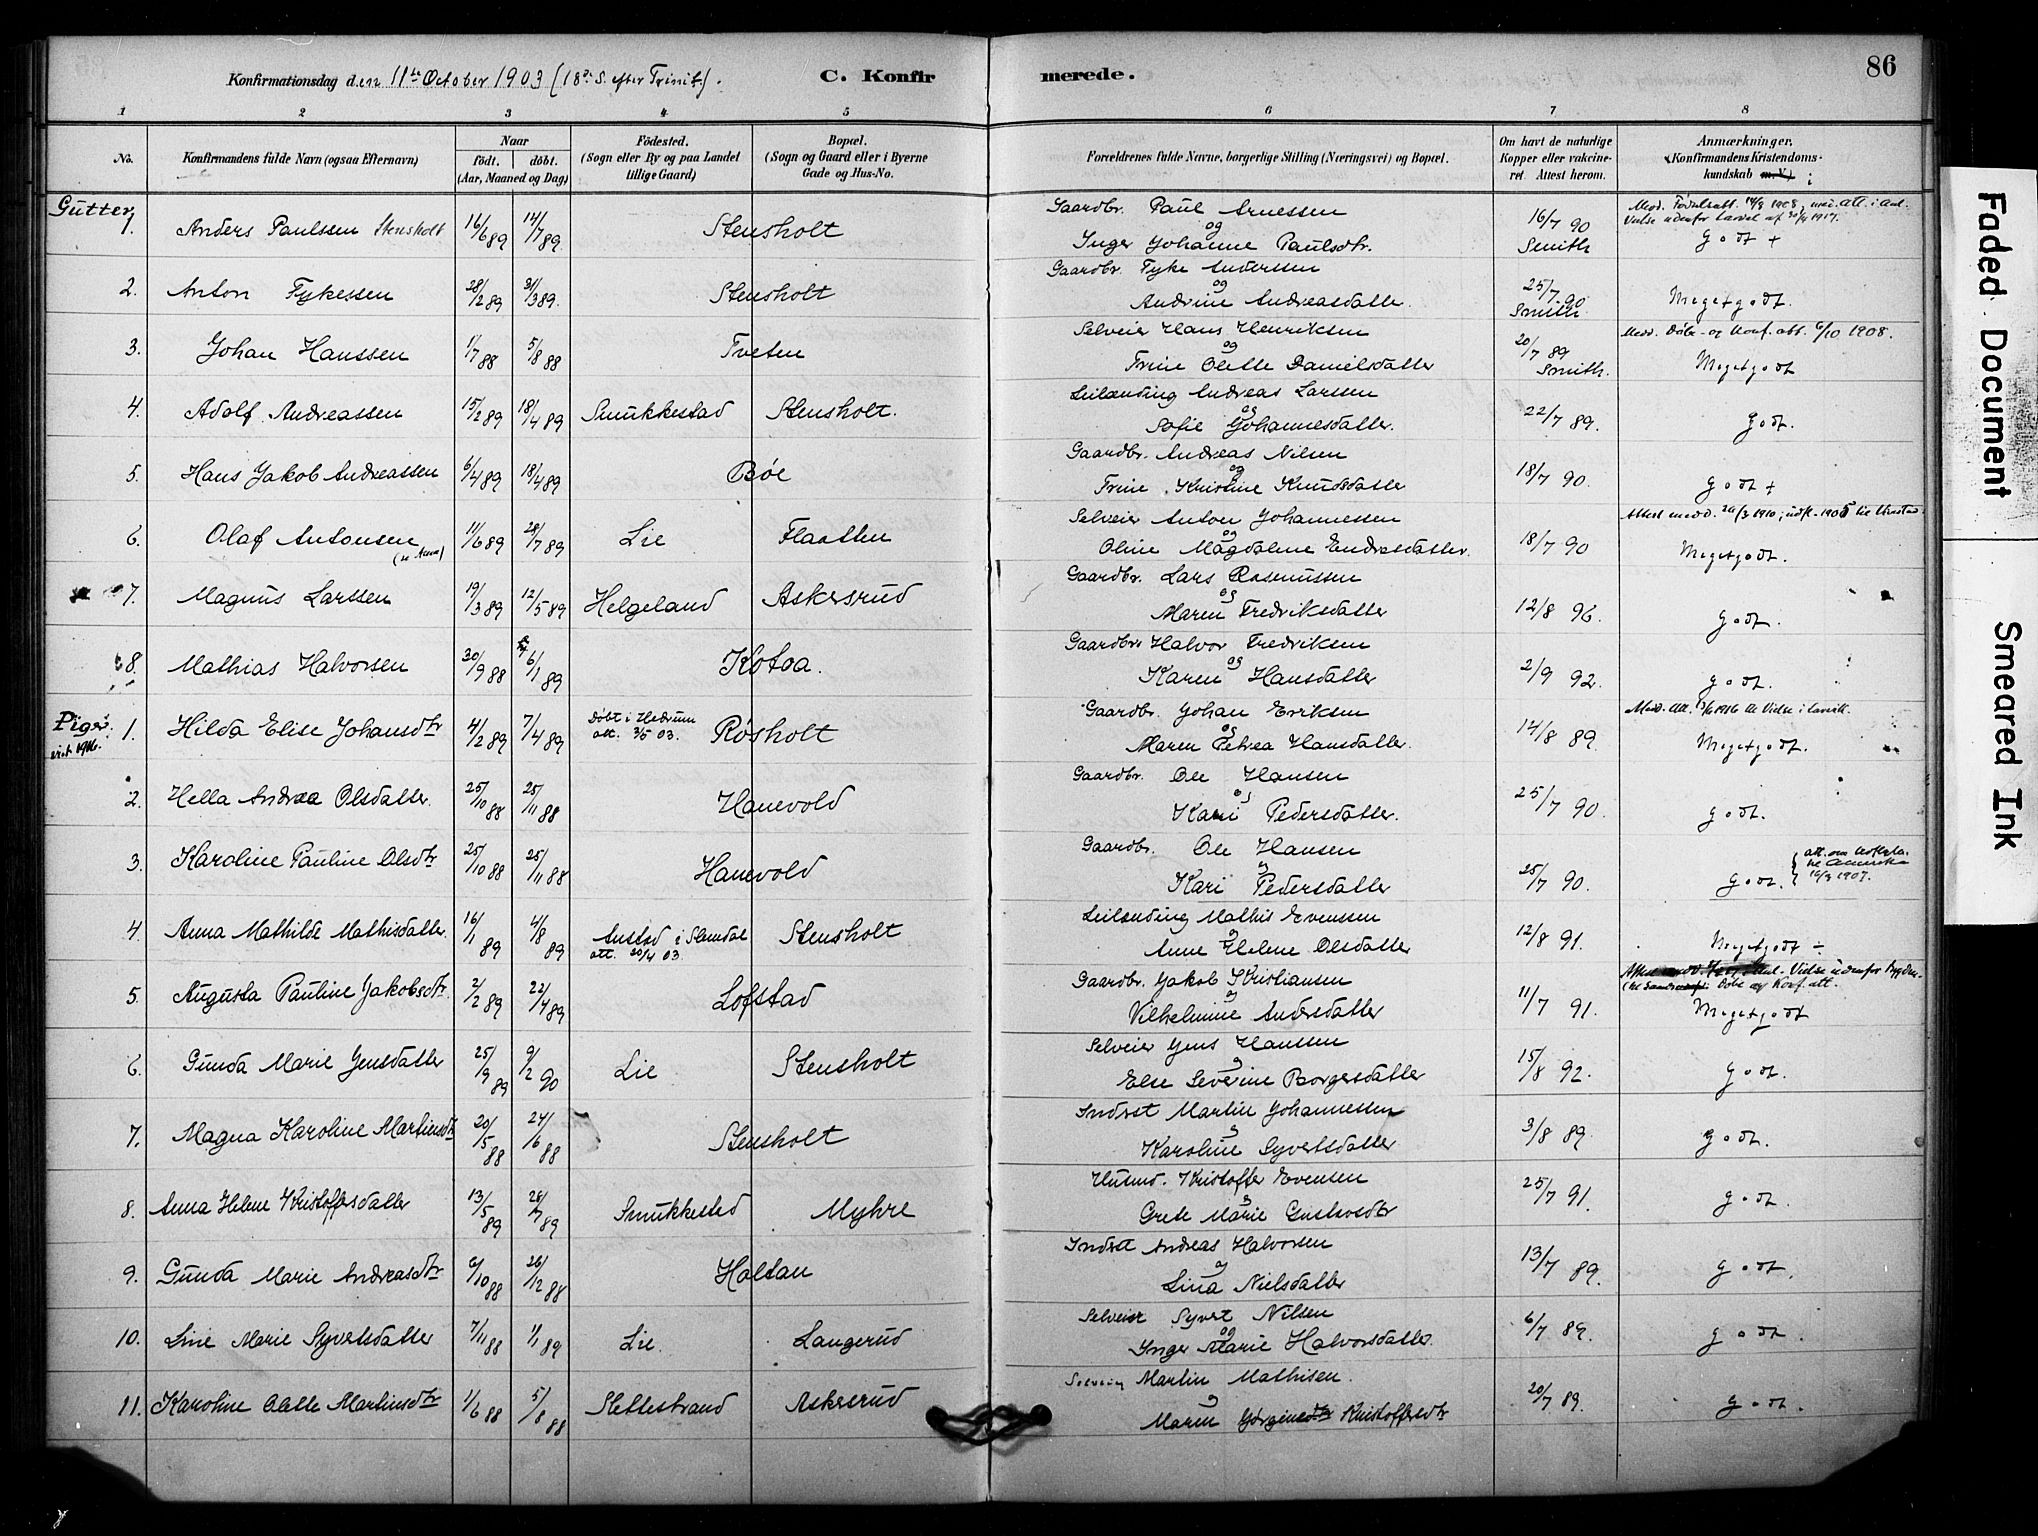 Konfirmationsdag den 11te October 1903 (18de S. efter Trinit.).
C. Konfirmerede.
86
1 2 3 4 5 6 7 8
No.
Konfirmandens fulde Navn (ogsaa Efternavn)
Naar
födt. döbt.
(Aar, Maaned og Dag)
Födested.
(Sogn eller By og paa Landet
tillige Gaard)
Bopæl.
(Sogn og Gaard eller i Byerne
Gade og Hus-No.
Forældrenes fulde Navne, borgerlige Stilling (Næringsvei) og Bopæl.
Om havt de naturlige
Kopper eller vakcine-
ret. Attest herom.
Anmærkninger.
(Konfirmandens Kristendoms-
kundskab m. V.)
Gutter
1. Anders Paulssen Stensholt 16/6 89 14/7 89. Stensholt Gaardbr. Paul Arnessen og Inger Johanne Paulsdtr. 16/7 90 Smith Godt +
2. Anton Fykessen 28/2 89 31/3 89. Stensholt Gaardbr. Fyke Anderssen og Andrine Andreasdatter. 25/7 90 Smith Megetgodt.
3. Johan Hanssen 1/7 88 5/8 88 Tveten Selveier Hans Henriksen og Trine Olette Danielsdatter 20/7 89 Smith. Medd. Døbe- og Konf. att. 6/10 1908. Megetgodt
4. Adolf Andreassen 15/2 89 18/4 89 Smukkestad Stensholt. Leilænding Andreas Larssen og Sofie Johannesdatter. 22/7 89. Godt.
5. Hans Jakob Andreassen 6/4 89 18/4 89 Bøe Gaardbr. Andreas Nilsen og Trine Kristine Knudsdatter 18/7 90. Godt +
6. Olaf Antonsen 11/6 89 28/7 89 Lie Flaatten Selveier Anton Johannessen og Oline Magdalene Endresdatter. 18/7 90 Megetgodt.
7. Magnus Larssen 19/3 89 12/5 89 Helgeland Askersrud Gaardbr. Lars Rasmussen og Maren Fredriksdatter 12/8 96. Godt.
8. Mathias Halvorsen 30/9 88 6/1 89 Kotoa. Gaardbr. Halvor Fredriksen og Karen Hansdatter 2/9 92. Godt.
Piger.
1. Hilda Elise Johansdtr 4/2 89 7/4 89 Døbt i Hedrum att. 3/5 03. Røsholt Gaardbr. Johan Eriksen og Maren Petrea Hansdatter. 14/8 89. Megetgodt.
2. Hella Andrea Olsdatter. 25/10 88 25/11 88 Hanevold Gaardbr. Ole Hansen og Kari Pedersdatter. 25/7 90. Godt.
3. Karoline Pauline Olsdtr 25/10 88 25/11 88 Hanevold Gaardbr. Ole Hansen og Kari Pedersdatter 25/7 90. Godt.
4. Anna Mathilde Mathisdatter. 16/1 89 4/8 89 att. 20/4 03. Stensholt Leilænding Mathis Evenssen og Anne Helene Olsdatter 12/8 91. Megetgodt ÷
5. Augusta Pauline Jakobsdtr. 2/2 89 22/4 89 Lofstad Gaardbr. Jakob Kristiansen og Vilhelmine Andersdatter 11/7 91. Megetgodt
6. Gunda Marie Jensdatter 25/9 89 9/2 90 Lie Stensholt Selveier Jens Hanssen og Else Severine Borgersdatter 15/8 92. Godt.
7. Magna Karoline Martinsdtr 20/5 88 24/6 88 Stensholt Inderst Martin Johannessen og Karoline Syvertsdatter 3/8 89. Godt.
8. Anna Helene Kristoffersdatter 13/5 89 28/7 89 Smukkestad Myhre Husmd. Kristoffer Evensen og Grete Marie Gustavsdtr 25/7 91. Godt.
9. Gunda Marie Andreasdtr 6/10 88 26/12 88 Holtan Inderst Andreas Halvorsen og Lina Nielsdatter 13/7 89. Godt.
10. Line Marie Syvertsdatter 7/11 88 1/1 89 Lie. Langerud Selveier Syvert Nilsen og Inger Marie Halvorsdatter. 6/7 89. Godt.
11. Karoline Olette Martinsdtr 1/6 88 5/8 88 Slettestrand Askersrud Selveier Martin Mathisen. og Maren Kristoffersdtr 20/7 89. Godt.
Faded Document
Smeared Ink